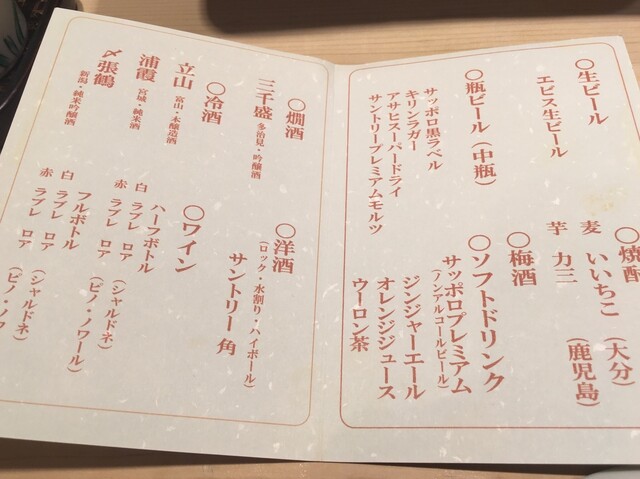 〇生ビール
エビス生ビール
〇瓶ビール（中瓶）
サッポロ黒ラベル
キリンラガー
アサヒスーパードライ
サントリープレミアムモルツ
〇焼酎
麦 いいちこ （大分）
芋 力三 （鹿児島）
〇梅酒
〇ソフトドリンク
サッポロプレミアム
（ノンアルコールビール）
ジンジャーエール
オレンジジュース
ウーロン茶
〇燗酒
三千盛 多治見・吟醸酒
〇冷酒
立山 富山・本醸造酒
浦霞 宮城・純米酒
〆張鶴 新潟・純米吟醸酒
〇洋酒
（ロック・水割り・ハイボール）
サントリー 角
〇ワイン
ハーフボトル
白 ラブレ ロア （シャルドネ）
赤 ラブレ ロア （ピノ・ノワール）
フルボトル
白 ラブレ ロア （シャルドネ）
赤 ラブレ ロア （ピノ・ノワ